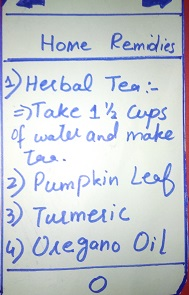 Home Remidies
1) Herbal Tea:-
=> Take 1 1/2 Cups
of water and make
Tea.
2) Pumpkin Leaf
3) Turmeric
4) Oregano Oil